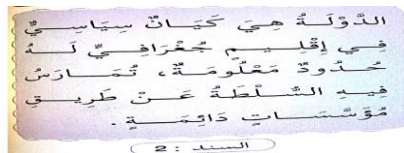 الدَّوْلَةُ هِيَ كَيَانٌ سِيَاسِيٌّ
فِي إِقْلِيمٍ جُغْرَافِيٍّ لَهُ
حُدُودٌ مَعْلُومَةٌ، تُمَارَسُ
فِيهِ السُّلْطَةُ عَنْ طَرِيقِ
مُؤَسَّسَاتٍ دَائِمَةٍ.
السند : 2